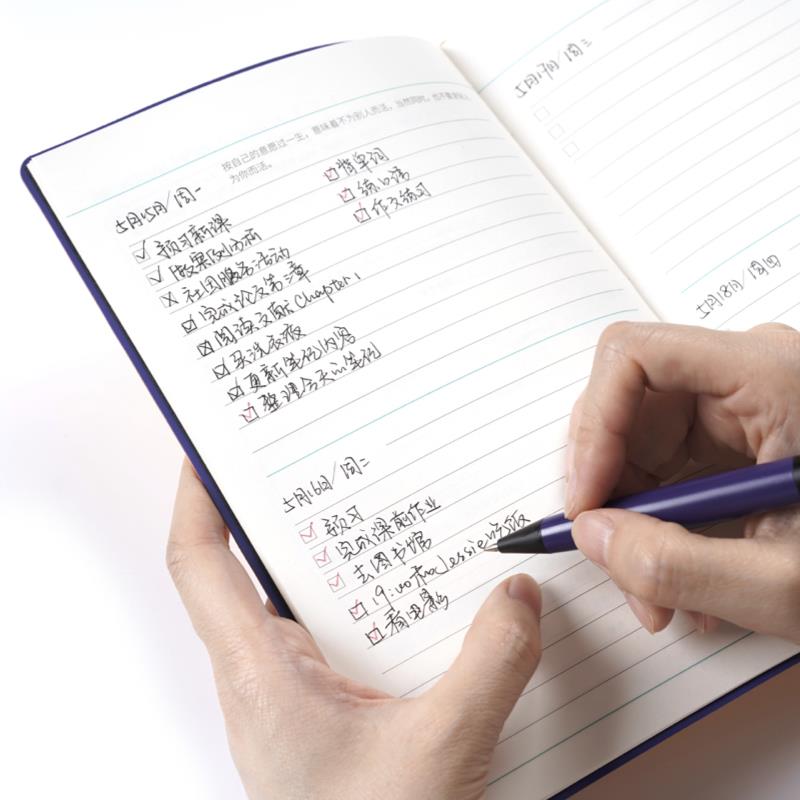 按自己的意愿过一生，意味着不为别人而活，当然同时，也不要求别人
为你而活。
5月15日/周一
预习新课
做案例分析
社团服务活动
完成论文第二章
阅读文献 Chapter 1
买洗衣液
更新笔记内容
整理今天的笔记
背单词
练口语
作文练习
5月16日/周二
预习
完成课前作业
去图书馆
19:00 和Jessie吃饭
看电影
5月17日/周三
5月18日/周四